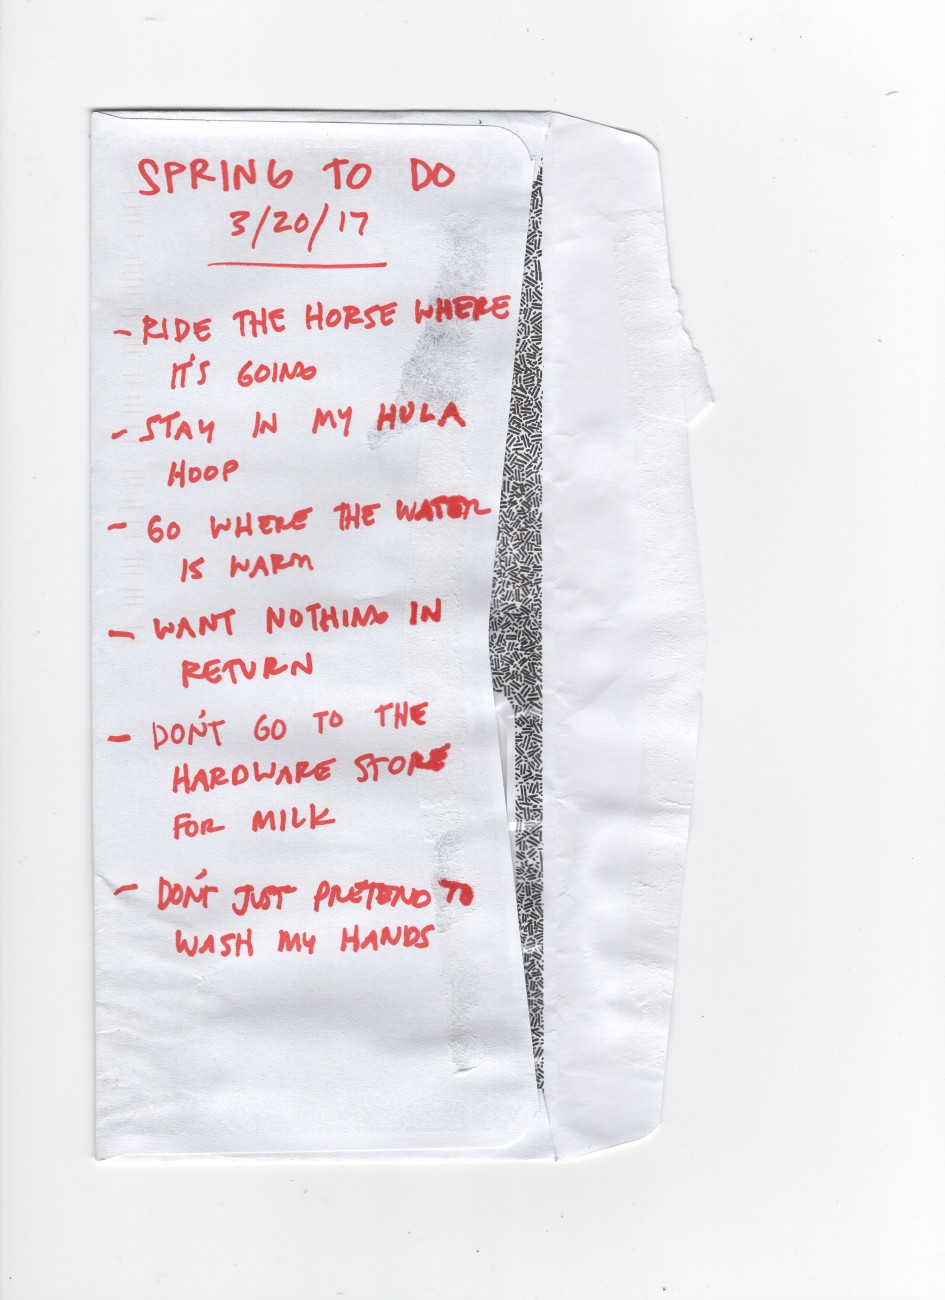 SPRING TO DO
3/20/17
- RIDE THE HORSE WHERE
IT'S GOING
- STAY IN MY HULA
HOOP
- GO WHERE THE WATER
IS WARM
- WANT NOTHING IN
RETURN
- DON'T GO TO THE
HARDWARE STORE
FOR MILK
- DON'T JUST PRETEND TO
WASH MY HANDS